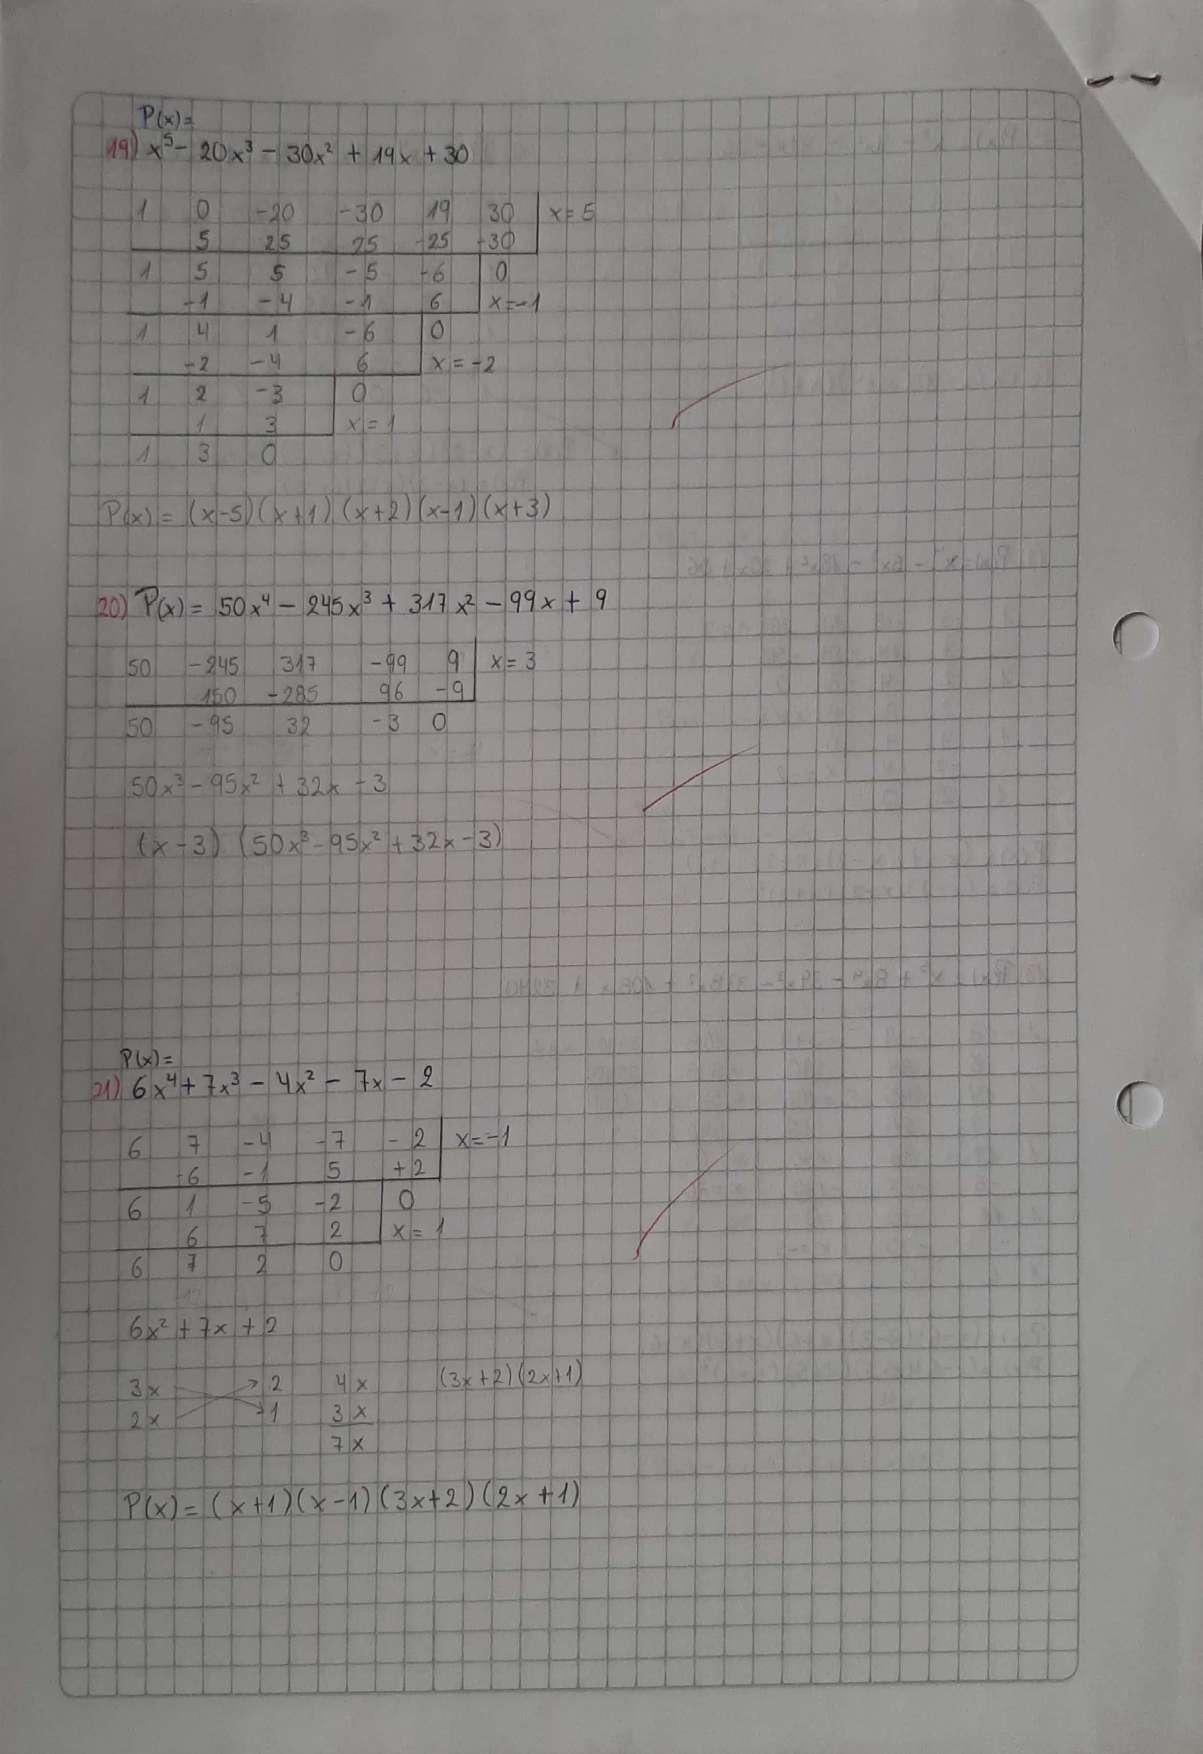 P(x)=
19) x⁵ - 20x³ - 30x² + 19x + 30
1 0 -20 -30 19 30 x=5
5 25 25 -25 -30
1 5 5 -5 -6 0
-1 -4 -1 6 x=-1
1 4 1 -6 0
-2 -4 6 x=-2
1 2 -3 0
1 3 x=1
1 3 0
P(x) = (x-5)(x+1)(x+2)(x-1)(x+3)
20) P(x) = 50x⁴ - 245x³ + 317x² - 99x + 9
50 -245 317 -99 9 x=3
150 -285 96 -9
50 -95 32 -3 0
50x³ - 95x² + 32x - 3
(x-3) (50x³ - 95x² + 32x - 3)
P(x)=
21) 6x⁴ + 7x³ - 4x² - 7x - 2
6 7 -4 -7 -2 x=-1
-6 -1 5 +2
6 1 -5 -2 0
6 7 2 x=1
6 7 2 0
6x² + 7x + 2
3x 2 4x (3x+2)(2x+1)
2x 1 3x
7x
P(x) = (x+1)(x-1)(3x+2)(2x+1)